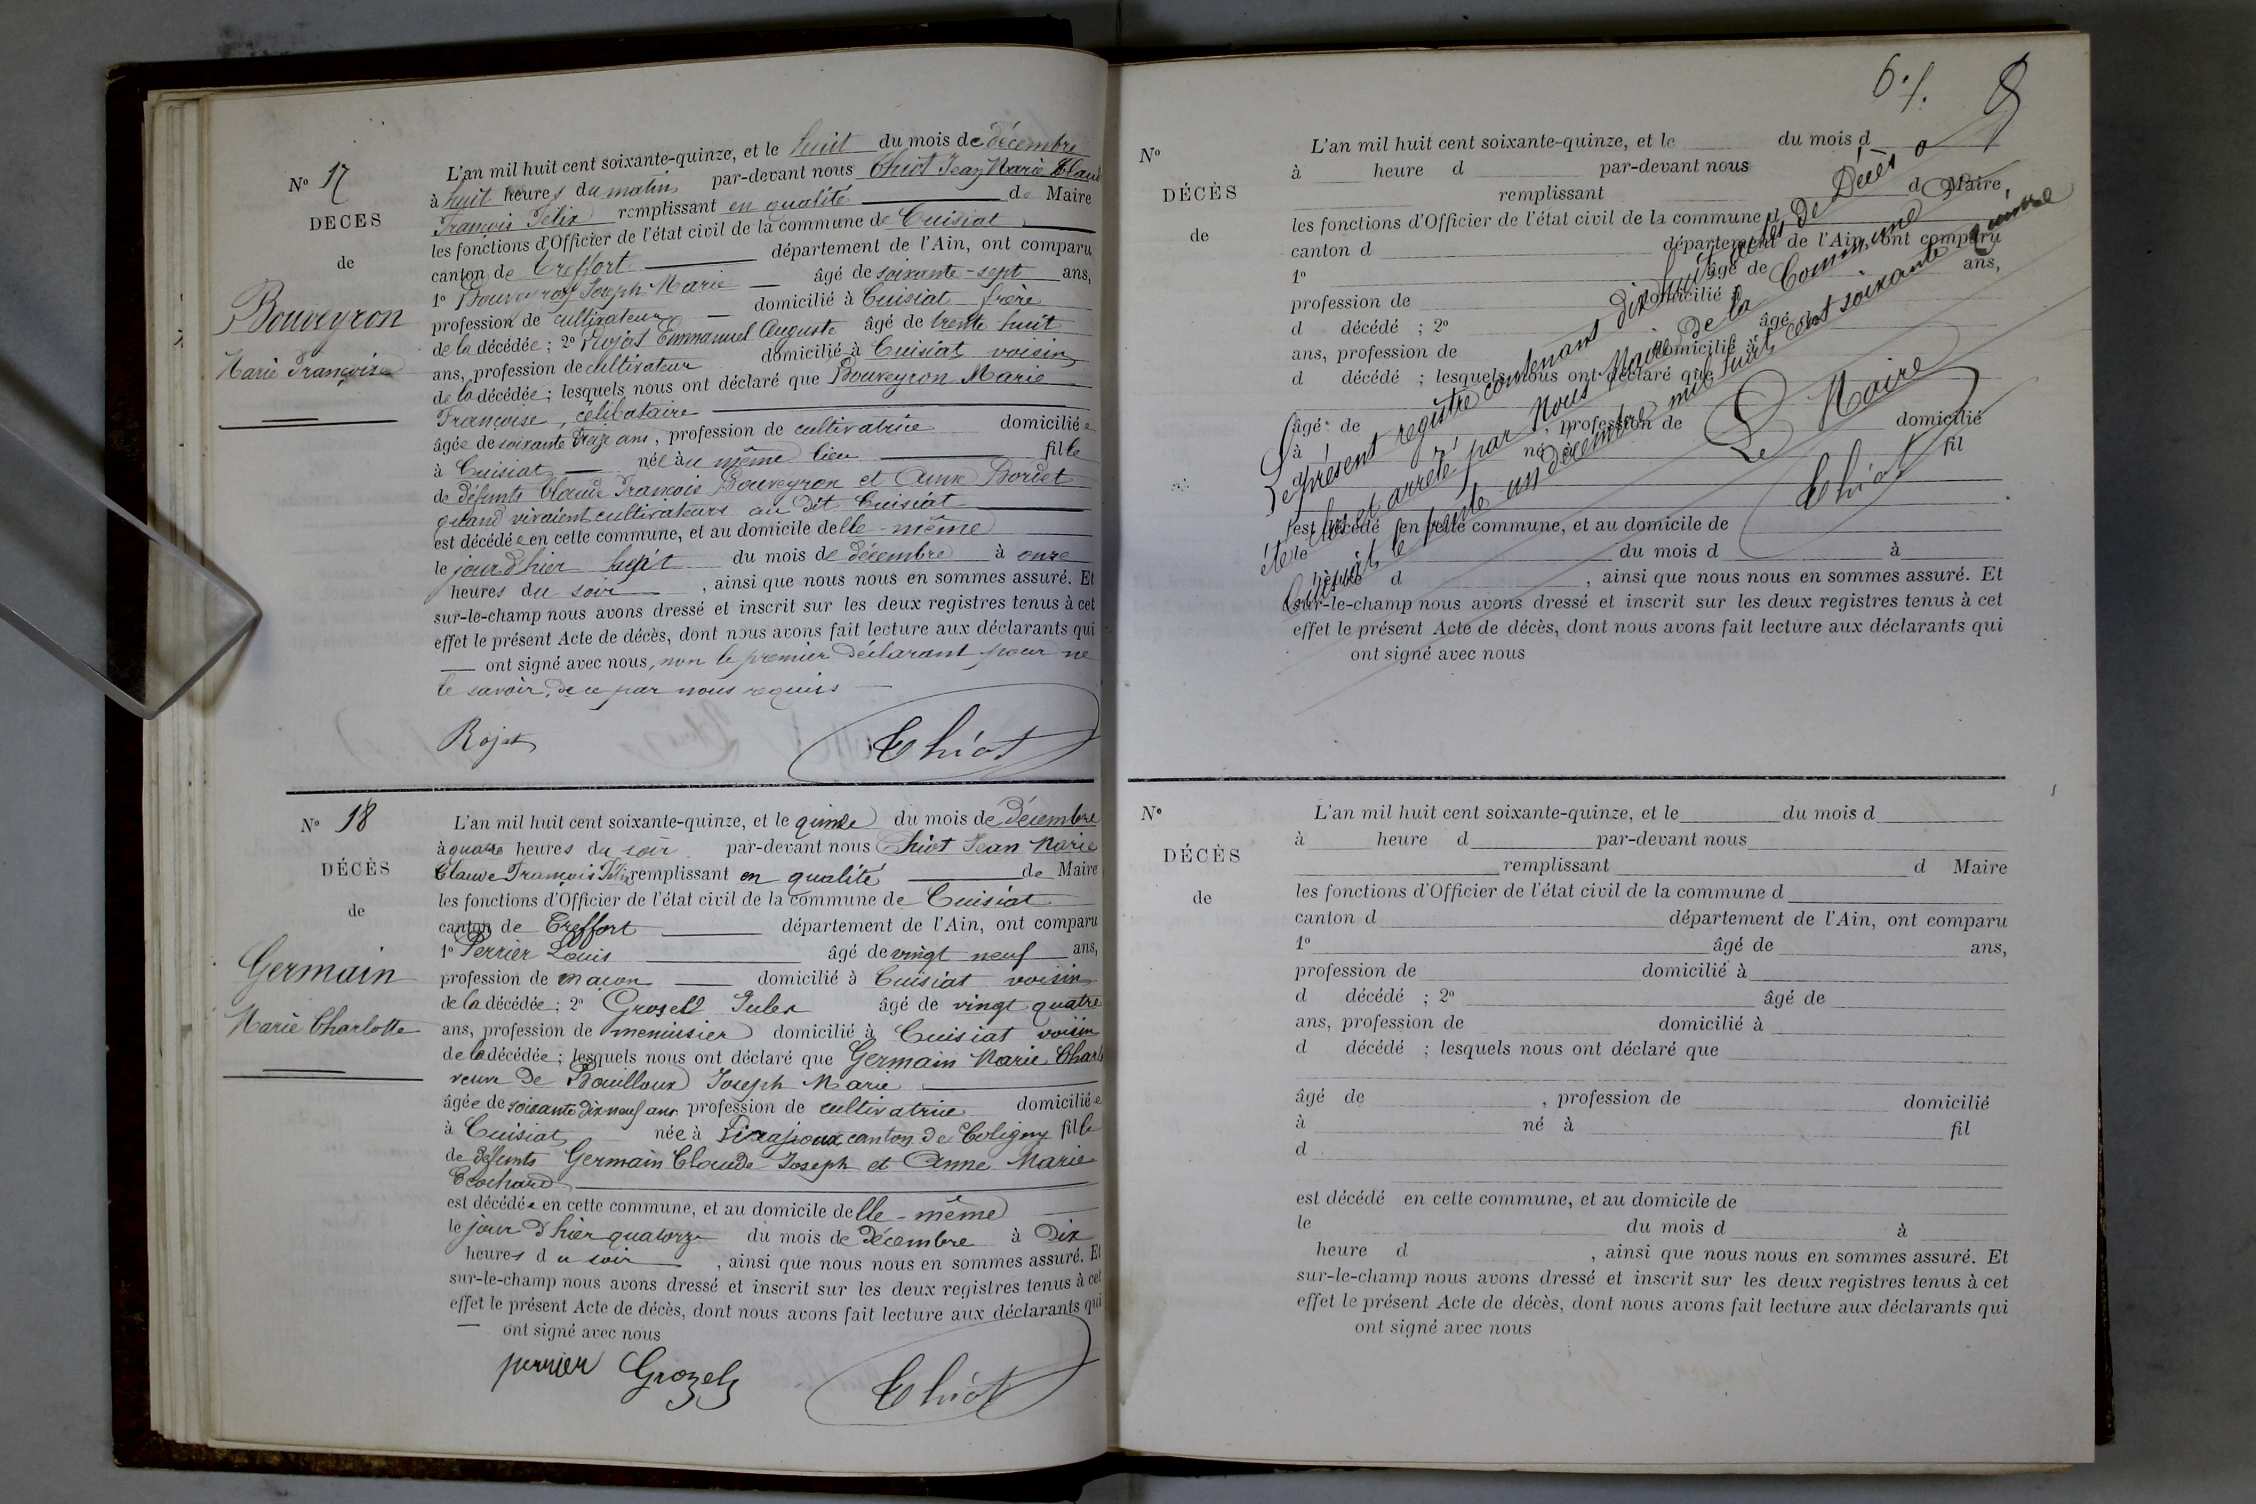 N° 17
DECES
de
Bouveyron
Marie Françoise
L'an mil huit cent soixante-quinze, et le huit du mois de décembre
à huit heures du matin par-devant nous Chiot Jean Marie Claud
François Félix remplissant en qualité de Maire
les fonctions d'Officier de l'état civil de la commune de Cuisiat
canton de Treffort département de l'Ain, ont comparu
1° Bouveyron Joseph Marie âgé de soixante-sept ans,
profession de cultivateur domicilié à Cuisiat frère
de la décédée ; 2° Rojat Emmanuel Auguste âgé de trente huit
ans, profession de cultivateur domicilié à Cuisiat voisin
de la décédée ; lesquels nous ont déclaré que Bouveyron Marie
Françoise, célibataire
âgée de soixante treize ans, profession de cultivatrice domiciliée
à Cuisiat née au même lieu fille
de défunts Claude François Bouveyron et Anne Bordet
quand vivaient cultivateurs au dit Cuisiat
est décédée en cette commune, et au domicile delle-même
le jour d'hier sept du mois de décembre à onze
heures du soir , ainsi que nous nous en sommes assuré. Et
sur-le-champ nous avons dressé et inscrit sur les deux registres tenus à cet
effet le présent Acte de décès, dont nous avons fait lecture aux déclarants qui
ont signé avec nous, non le premier déclarant pour ne
le savoir, de ce par nous requis
Rojat Chiot
N° 18
DÉCÈS
de
Germain
Marie Charlotte
L'an mil huit cent soixante-quinze, et le quinze du mois de décembre
à quatre heures du soir par-devant nous Chiot Jean Marie
Claude François Félix remplissant en qualité de Maire
les fonctions d'Officier de l'état civil de la commune de Cuisiat
canton de Treffort département de l'Ain, ont comparu
1° Perrier Louis âgé de vingt neuf ans,
profession de maçon domicilié à Cuisiat voisin
de la décédée ; 2° Grosel Jules âgé de vingt quatre
ans, profession de menuisier domicilié à Cuisiat voisin
de la décédée ; lesquels nous ont déclaré que Germain Marie Charl
veuve de Bouilloux Joseph Marie
âgée de soixante dix neuf ans profession de cultivatrice domiciliée
à Cuisiat née à Pirajoux canton de Coligny fille
de défunts Germain Claude Joseph et Anne Marie
Ecochard
est décédée en cette commune, et au domicile delle-même
le jour d'hier quatorze du mois de décembre à dix
heures du soir , ainsi que nous nous en sommes assuré. Et
sur-le-champ nous avons dressé et inscrit sur les deux registres tenus à cet
effet le présent Acte de décès, dont nous avons fait lecture aux déclarants qui
ont signé avec nous
perrier Grozel Chiot
8
N°
DÉCÈS
de
L'an mil huit cent soixante-quinze, et le du mois d
à heure d par-devant nous
remplissant d Maire
les fonctions d'Officier de l'état civil de la commune d
canton d département de l'Ain, ont comparu
1° âgé de ans,
profession de domicilié à
d décédé ; 2° âgé de
ans, profession de domicilié à
d décédé ; lesquels nous ont déclaré que
âgé de , profession de domicilié
à né à fil
est décédé en cette commune, et au domicile de
le du mois d à
heure d , ainsi que nous nous en sommes assuré. Et
sur-le-champ nous avons dressé et inscrit sur les deux registres tenus à cet
effet le présent Acte de décès, dont nous avons fait lecture aux déclarants qui
ont signé avec nous
Le présent registre contenant dix huit actes de Décès a
été clos et arrêté par Nous Maire de la Commune de
Cuisiat, le trente un décembre mil huit cent soixante quinze
Le Maire
Chiot
N°
DÉCÈS
de
L'an mil huit cent soixante-quinze, et le du mois d
à heure d par-devant nous
remplissant d Maire
les fonctions d'Officier de l'état civil de la commune d
canton d département de l'Ain, ont comparu
1° âgé de ans,
profession de domicilié à
d décédé ; 2° âgé de
ans, profession de domicilié à
d décédé ; lesquels nous ont déclaré que
âgé de , profession de domicilié
à né à fil
d
est décédé en cette commune, et au domicile de
le du mois d à
heure d , ainsi que nous nous en sommes assuré. Et
sur-le-champ nous avons dressé et inscrit sur les deux registres tenus à cet
effet le présent Acte de décès, dont nous avons fait lecture aux déclarants qui
ont signé avec nous